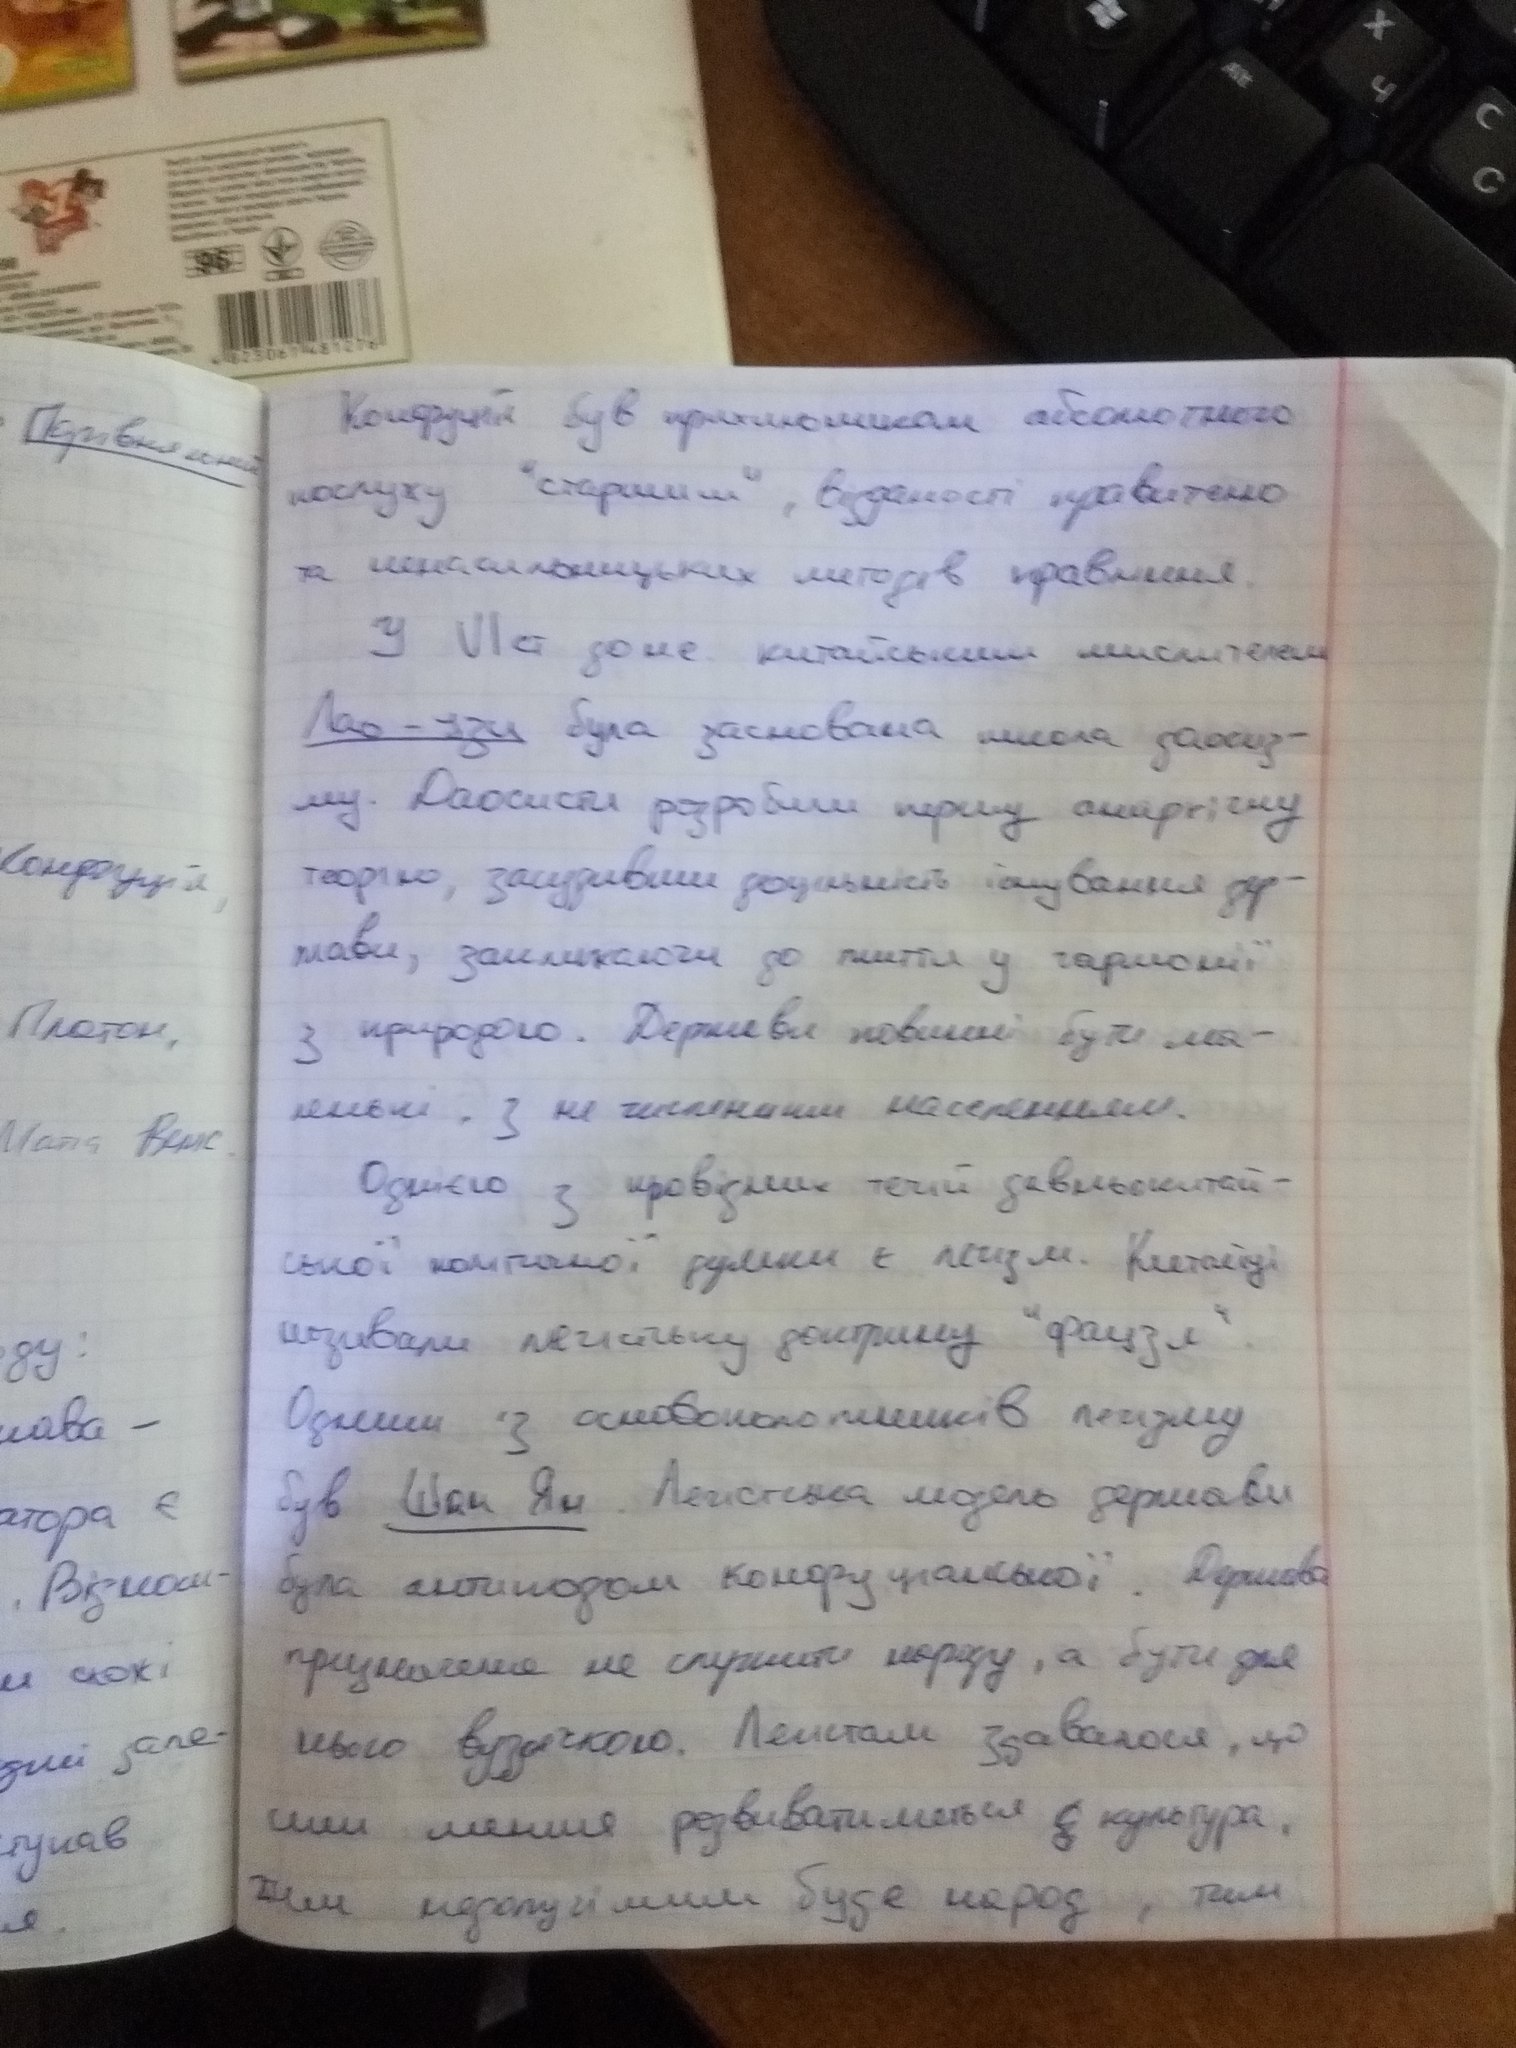 Порівняльний
Конфуція,
Платон,
Мате Веліс.
оду:
жава -
атора є
. Віднош-
и своєї
дній запе-
ступав
я.
Конфуцій був прихильником абсолютного
послуху "старшим", відданості правителю
та ненасильницьких методів правління.
У VI ст до н.е. китайським мислителем
Лао-цзи була заснована школа даосиз-
му. Даосисти розробили першу анархічну
теорію, засудивши доцільність існування дер-
жави, закликаючи до життя у гармонії
з природою. Держави повинні бути ма-
ленькі. з не численним населенням.
Однією з провідних течій давньокитай-
ської політичної думки є легізм. Китайці
називали легістську доктрину "фацзя".
Одним із основоположників легізму
був Шан Ян. Легістська модель держави
була антиподом конфуціанської. Держава
призначена не служити народу, а бути для
нього вуздечкою. Легістам здавалося, що
чим менше розвиватиметься культура,
тим недолугішим буде народ, тим
96
4 823067 481276
Alt
Х
Ч
C
С